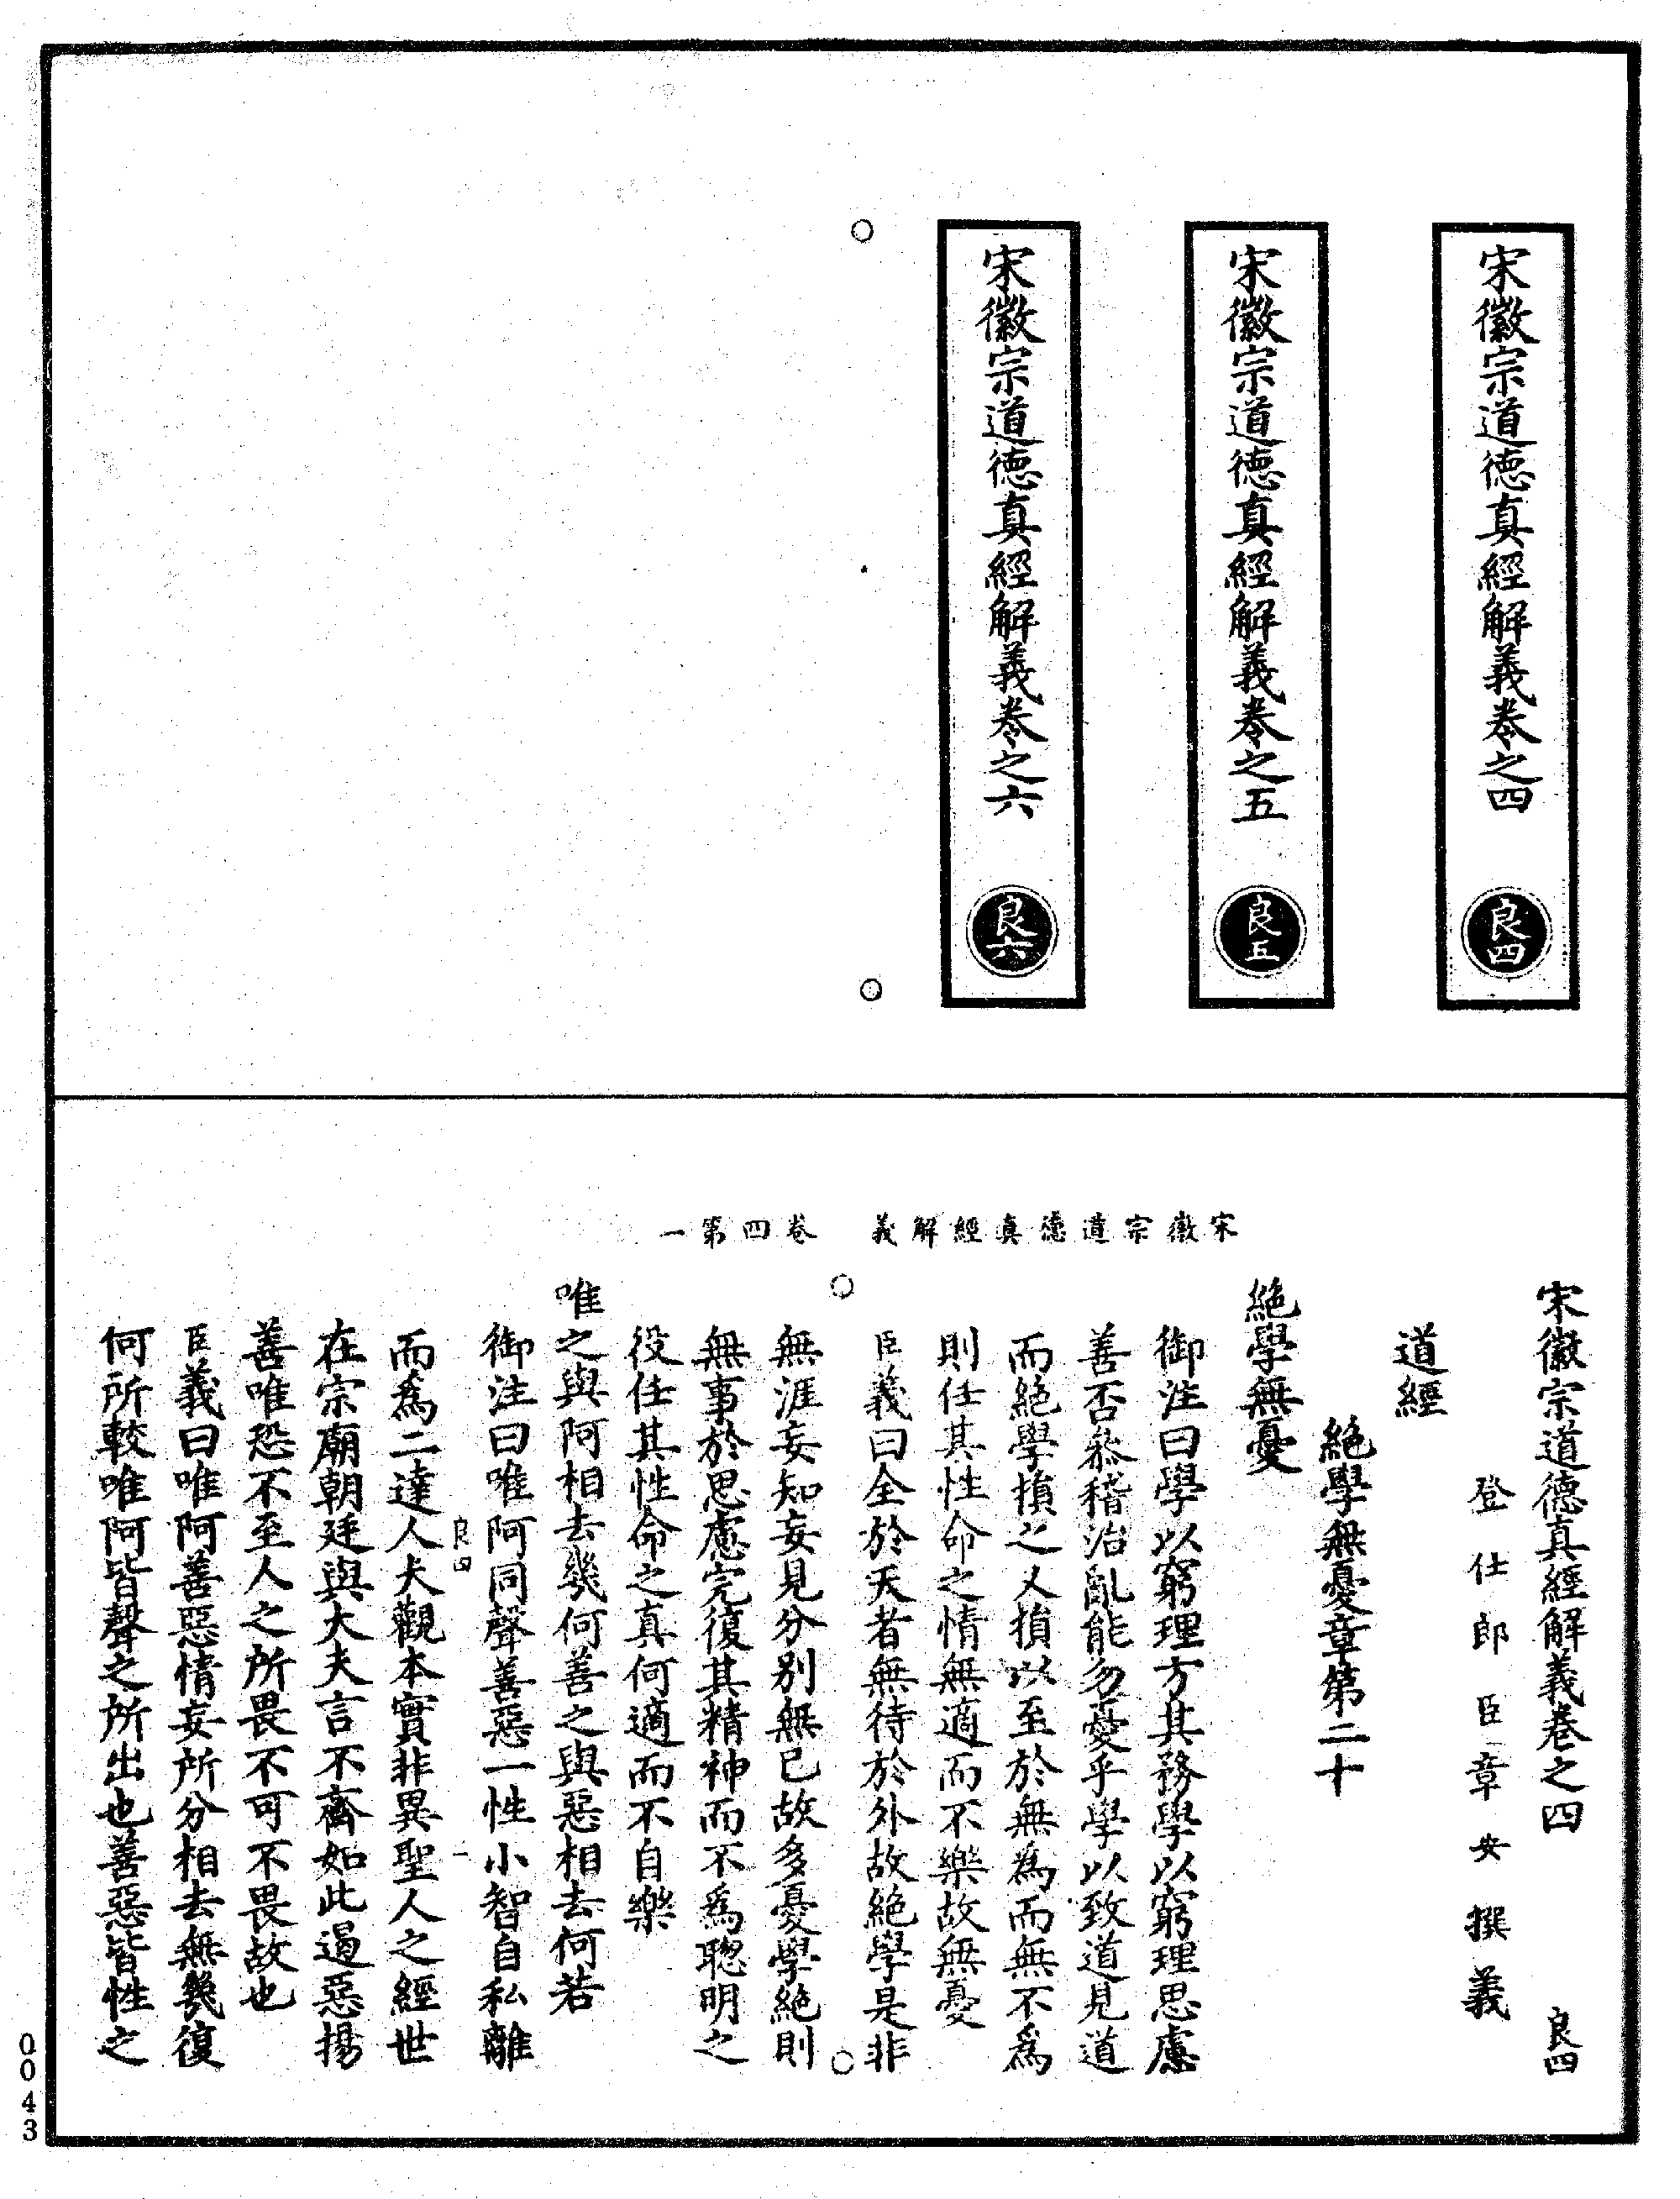 宋徽宗道德真經解義卷之四
良四
宋徽宗道德真經解義卷之五
良五
宋徽宗道德真經解義卷之六
良六
宋徽宗道德真經解義　卷四第一
宋徽宗道德真經解義卷之四　良四
登仕郎臣章安撰義
道經
絕學無憂章第二十
絕學無憂
御注曰學以窮理方其務學以窮理思慮
善否叅稽治亂能勿憂乎學以致道見道
而絕學損之又損以至於無為而無不爲
則任其性命之情無適而不樂故無憂
臣義曰全於天者無待於外故絕學是非
無涯妄知妄見分别無已故多憂學絕則
無事於思慮完復其精神而不爲聦明之
役任其性命之真何適而不自樂
唯之與阿相去幾何善之與惡相去何若
御注曰唯阿同聲善惡一性小智自私離
良四　一
而爲二達人大觀本實非異聖人之經世
在宗廟朝廷與大夫言不齊如此遏惡揚
善唯恐不至人之所畏不可不畏故也
臣義曰唯阿善惡情妄所分相去無幾復
何所較唯阿皆聲之所出也善惡皆性之
0043